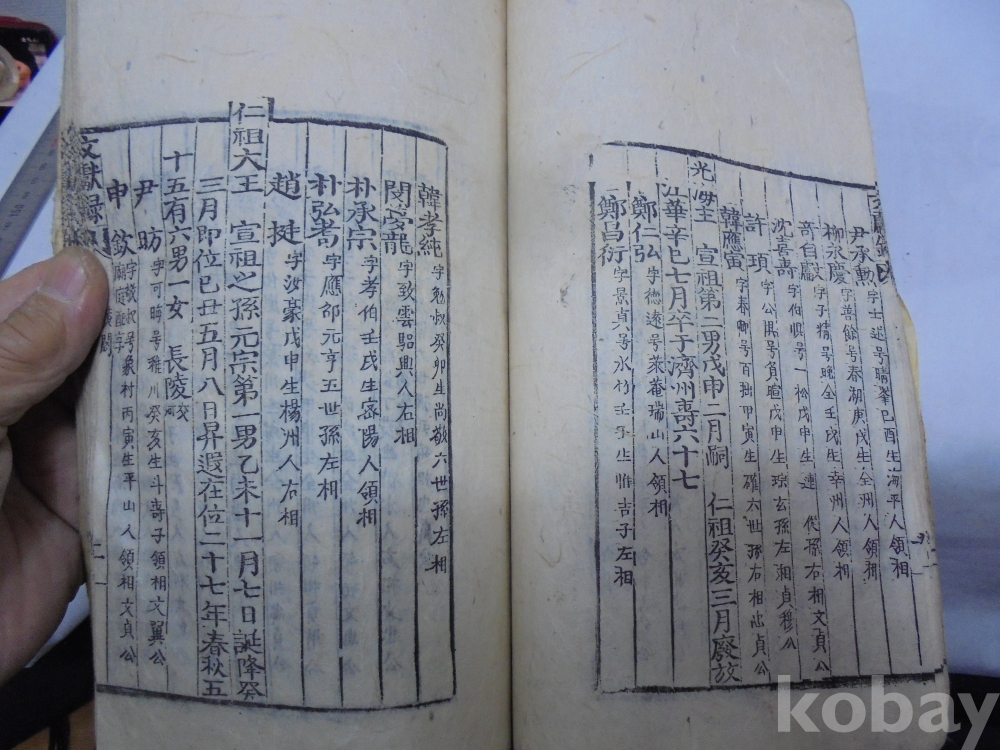 尹承勳 字士述号晴峯己酉生海平人領相
柳永慶 字善餘号春湖庚戌生全州人領相
奇自獻 字子精号晩全壬戌生幸州人領相
沈喜壽 字伯惧号一松戊申生連 代孫右相文貞公
許頊 字公愼号負暄戊申生琮玄孫左相貞穆公
韓應寅 字春卿号百拙甲寅生確六世孫右相忠貞公
光海王 宣祖第二男戊申二月嗣 仁祖癸亥三月廢放
江華辛巳七月卒于濟州壽六十七
鄭仁弘 字德遠号萊菴瑞山人領相
鄭昌衍 字景眞号水竹壬子生惟吉子左相
韓孝純 字勉叔癸卯生尚敬六世孫左相
閔夢龍 字致雲驪興人右相
朴承宗 字孝伯壬戌生密陽人領相
朴弘耈 字應邵元亨五世孫左相
趙挺 字汝豪戊申生楊州人右相
仁祖大王 宣祖之孫元宗第一男乙未十一月七日誕降癸
三月即位己丑五月八日昇遐在位二十七年春秋五
十五有六男一女 長陵 交河
尹昉 字可晦号稚川癸亥生斗壽子領相文翼公
申欽 字敬叔号象村丙寅生平山人領相文貞公
文獻錄
kobay